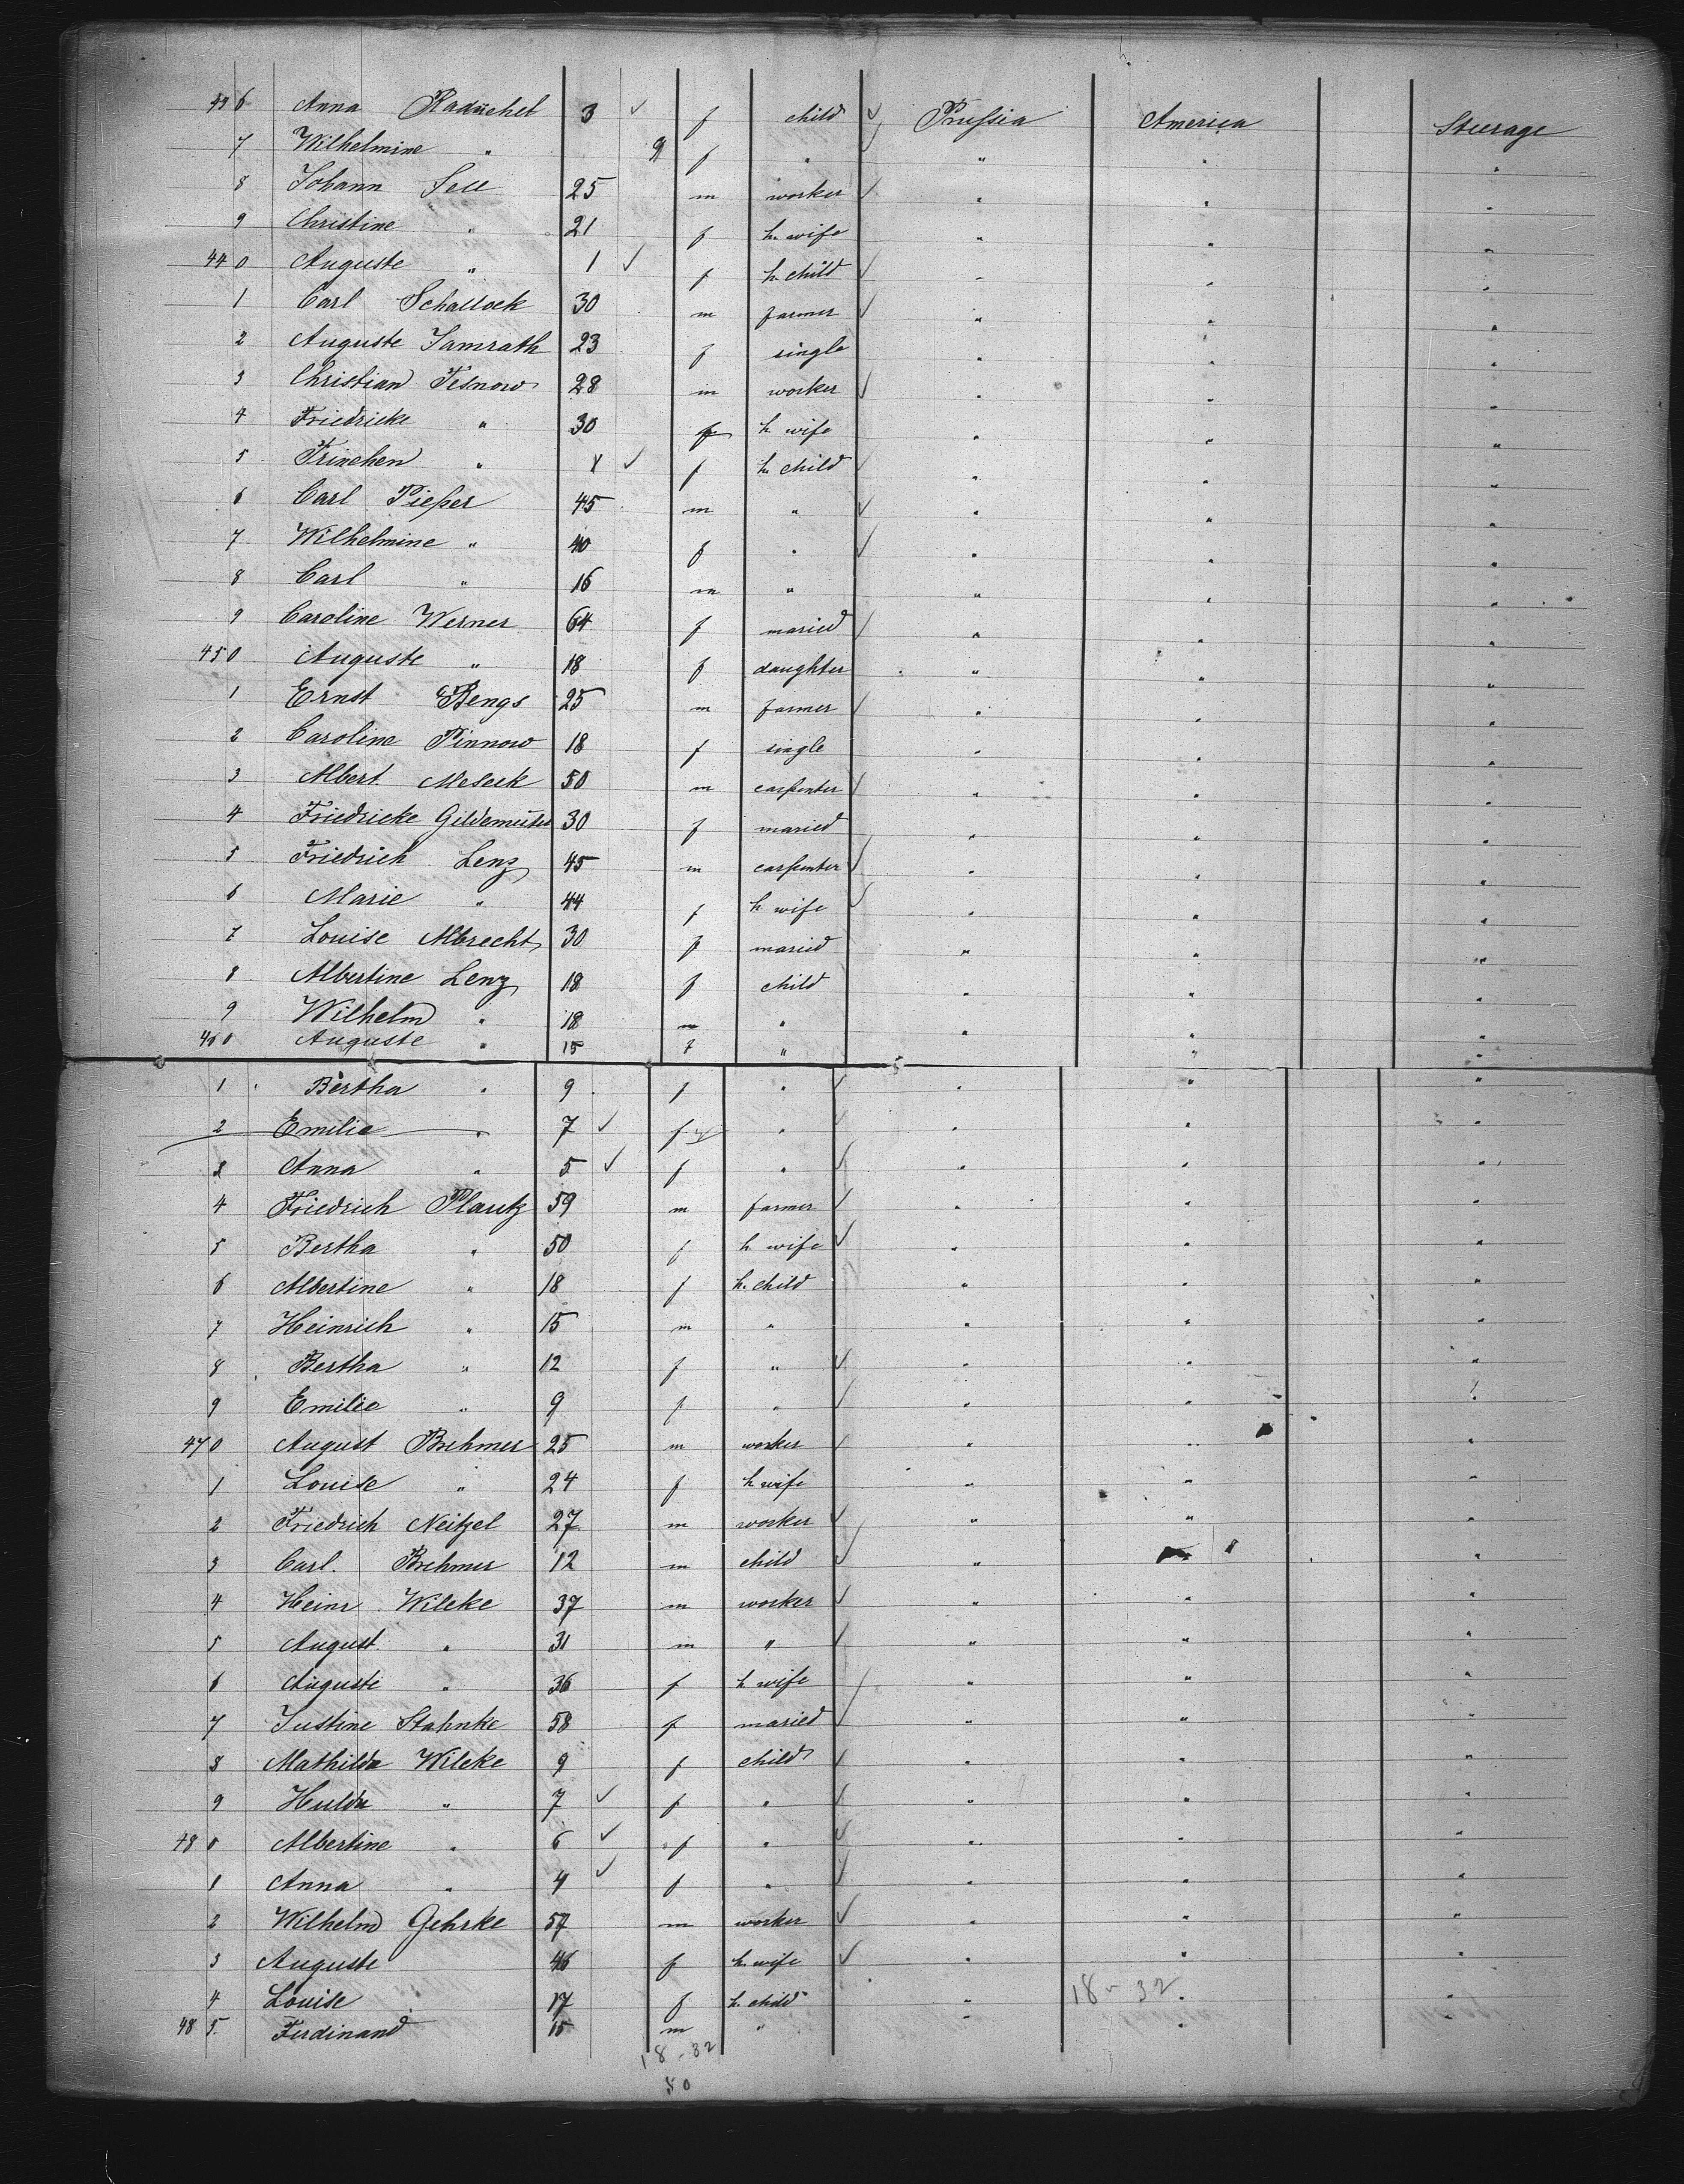 43 6 Anna Raduchel 3 ✓ f child ✓ Prussia America Steerage
7 Wilhelmine " 9 f " " " "
8 Johann Sell 25 m worker ✓ " " "
9 Christine " 21 f h. wife " " "
44 0 Auguste " 1 ✓ f h. child ✓ " " "
1 Carl Schallock 30 m farmer ✓ " " "
2 Auguste Jamrath 23 f single " " "
3 Christian Tesnow 28 m worker ✓ " " "
4 Friedricke " 30 f h wife " " "
5 Trinchen " ✓ f h. child " " "
6 Carl Pieper 45 m " ✓ " " "
7 Wilhelmine " 40 f " ✓ " " "
8 Carl " 16 m " " " "
9 Caroline Werner 64 f maried ✓ " " "
45 0 Auguste " 18 f daughter " " "
1 Ernst Bengs 25 m farmer ✓ " " "
2 Caroline Pinnow 18 f single " " "
3 Albert Meseck 50 m carpenter ✓ " " "
4 Friedricke Gildemeister 30 f maried " " "
5 Friedrich Lenz 45 m carpenter ✓ " " "
6 Marie " 44 f h wife ✓ " " "
7 Louise Albrecht 30 f maried " " "
8 Albertine Lenz 18 f child " " "
9 Wilhelm " 18 m " " " "
46 0 Auguste " 15 f " " " "
1 Bertha " 9 f " ✓ " " "
2 Emilie " 7 ✓ f " ✓ " " "
3 Anna " 5 ✓ f " ✓ " " "
4 Friedrich Plautz 59 m farmer ✓ " " "
5 Bertha " 50 f h wife ✓ " " "
6 Albertine " 18 f h. child " " "
7 Heinrich " 15 m " " " "
8 Bertha " 12 f " ✓ " " "
9 Emilie " 9 f " ✓ " " "
47 0 August Brehmer 25 m worker ✓ " " "
1 Louise " 24 f h wife " " "
2 Friedrich Neitzel 27 m worker ✓ " " "
3 Carl. Brehmer 12 m child ✓ " "
4 Heinr Wilcke 37 m worker ✓ " " "
5 August " 31 m " ✓ " " "
6 Auguste " 36 f h wife ✓ " " "
7 Justine Stahnke 58 f maried ✓ " " "
8 Mathilda Wilcke 9 f child ✓ " " "
9 Hulda " 7 ✓ f " ✓ " " "
48 0 Albertine " 6 ✓ f " ✓ " " "
1 Anna " 4 ✓ f " ✓ " " "
2 Wilhelm Gehrke 57 m worker ✓ " " "
3 Auguste 46 f h. wife ✓ " " "
4 Louise 17 f h. child " 18-32 " "
48 5. Ferdinand 15 m " " " "
18-32
50